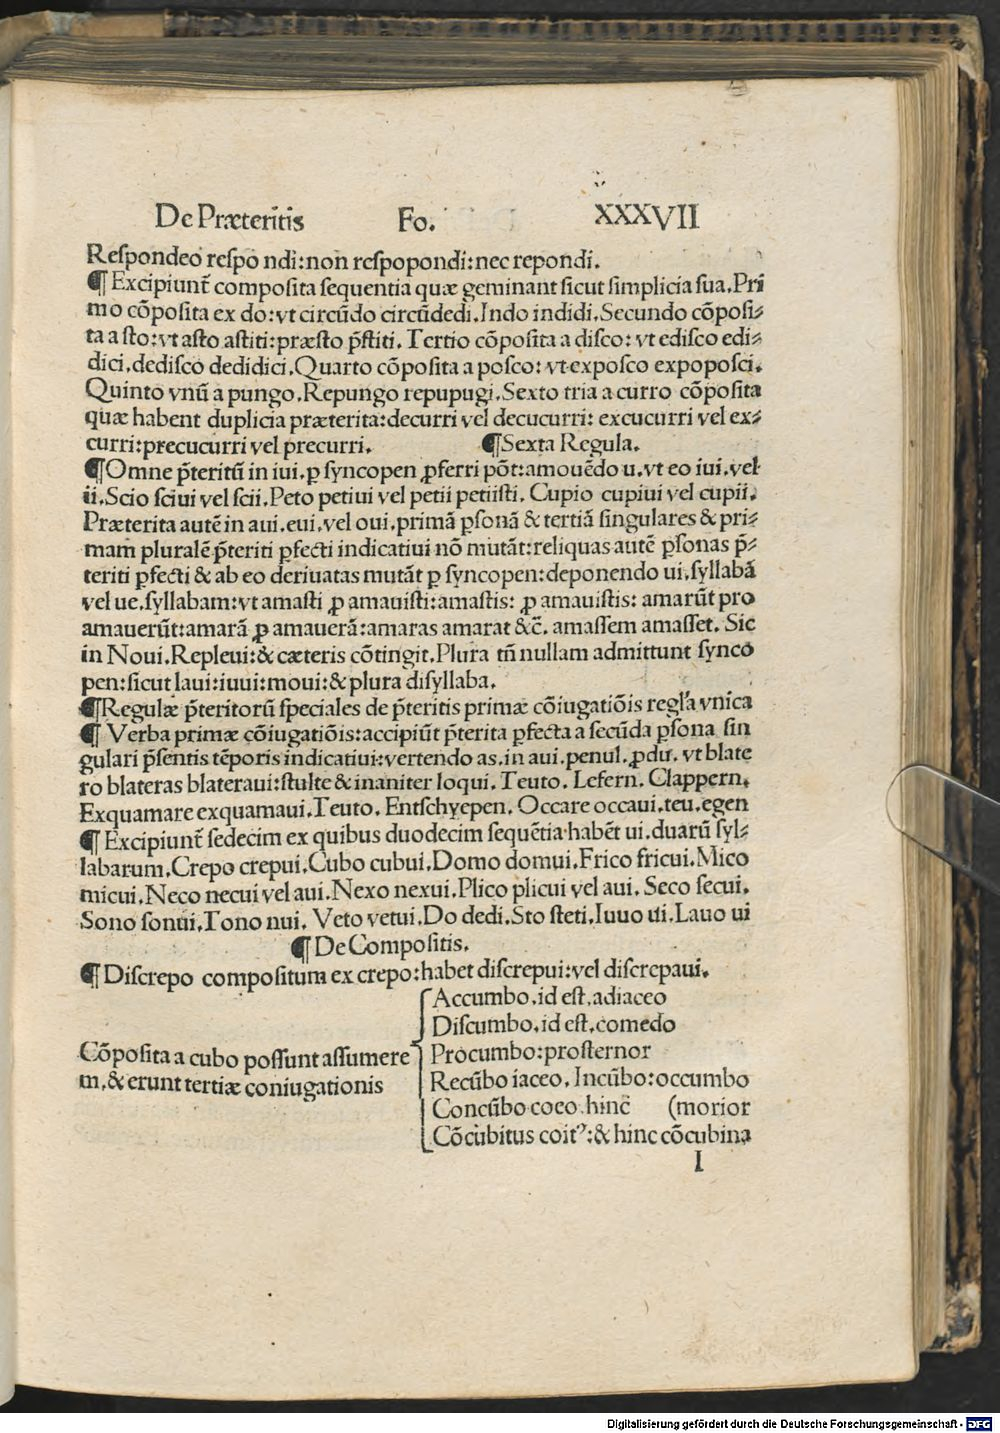 De Præteritis Fo. XXXVII
Reſpondeo reſpo ndi:non reſpopondi:nec repondi.
¶ Excipiunt̃ compoſita ſequentia quæ geminant ſicut ſimplicia ſua.Pri
mo cõpoſita ex do:vt circũdo circũdedi.Indo indidi.Secundo cõpoſi⸗
ta a ſto:vt aſto aſtiti:præſto p̃ſtiti. Tertio cõpoſita a diſco: vt ediſco edi⸗
dici.dediſco dedidici.Quarto cõpoſita a poſco: vt expoſco expopoſci.
Quinto vnũ a pungo.Repungo repupugi.Sexto tria a curro cõpoſita
quæ habent duplicia præterita:decurri vel decucurri: excucurri vel ex⸗
curri:precucurri vel precurri. ¶Sexta Regula.
¶Omne p̃teritũ in iui.ꝑ ſyncopen ꝓferri põt:amouẽdo u.vt eo iui.vel
ii.Scio ſciui vel ſcii.Peto petiui vel petii petiiſti. Cupio cupiui vel cupii.
Præterita autẽ in aui.eui.vel oui.primã ꝑſonã & tertiã ſingulares & pri⸗
mam pluralẽ p̃teriti ꝑfecti indicatiui nõ mutãt:reliquas autẽ ꝑſonas p̃⸗
teriti ꝑfecti & ab eo deriuatas mutãt ꝑ ſyncopen:deponendo ui.ſyllabã
vel ue.ſyllabam:vt amaſti ꝓ amauiſti:amaſtis: ꝓ amauiſtis: amarũt pro
amauerũt:amarã ꝓ amauerã:amaras amarat &c̃. amaſſem amaſſet. Sic
in Noui.Repleui:& cæteris cõtingit.Plura tñ nullam admittunt ſynco
pen:ſicut laui:iuui:moui:& plura diſyllaba.
¶Regulæ p̃teritorũ ſpeciales de p̃teritis primæ cõiugatiõis regl'a vnica
¶ Verba primæ cõiugatiõis:accipiũt p̃terita ꝑfecta a ſecũda ꝑſona ſin
gulari p̃ſentis tẽporis indicatiui:vertendo as.in aui.penul.ꝓdu. vt blate
ro blateras blateraui:ſtulte & inaniter loqui. Teuto. Lefern. Clappern.
Exquamare exquamaui.Teuto. Entſchyepen. Occare occaui.teu.egen
¶ Excipiunt̃ ſedecim ex quibus duodecim ſequẽtia habẽt ui.duarũ ſyl⸗
labarum.Crepo crepui.Cubo cubui.Domo domui.Frico fricui.Mico
micui.Neco necui vel aui.Nexo nexui.Plico plicui vel aui. Seco ſecui.
Sono ſonui.Tono nui. Veto vetui.Do dedi.Sto ſteti.Iuuo ui.Lauo ui
¶ De Compoſitis.
¶ Diſcrepo compoſitum ex crepo:habet diſcrepui:vel diſcrepaui.
Cõpoſita a cubo poſſunt aſſumere
m.& erunt tertiæ coniugationis
Accumbo.id eſt.adiaceo
Diſcumbo.id eſt.comedo
Procumbo:proſternor
Recũbo iaceo. Incũbo:occumbo
Concũbo coeo.hinc̃ (morior
Cõcubitus coitꝰ:& hinc cõcubina
I
Digitalisierung gefördert durch die Deutsche Forschungsgemeinschaft - DFG